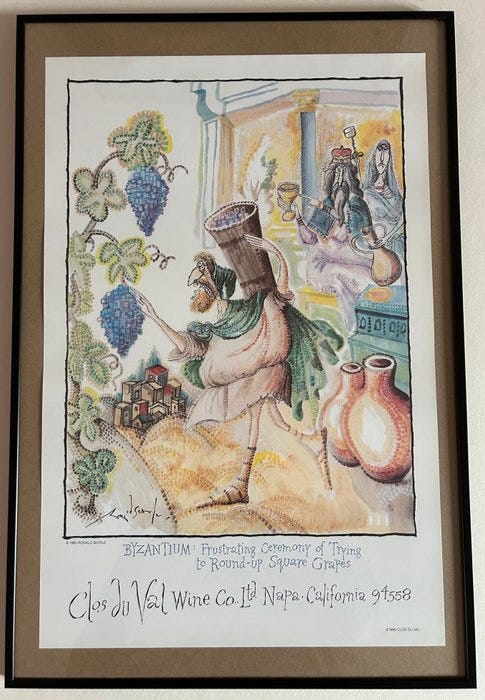 Ronald Searle
© 1985 RONALD SEARLE
BYZANTIUM: Frustrating Ceremony of Trying
to Round-up Square Grapes
Clos du Val Wine Co. Ltd Napa · California 94558
© 1985 CLOS DU VAL